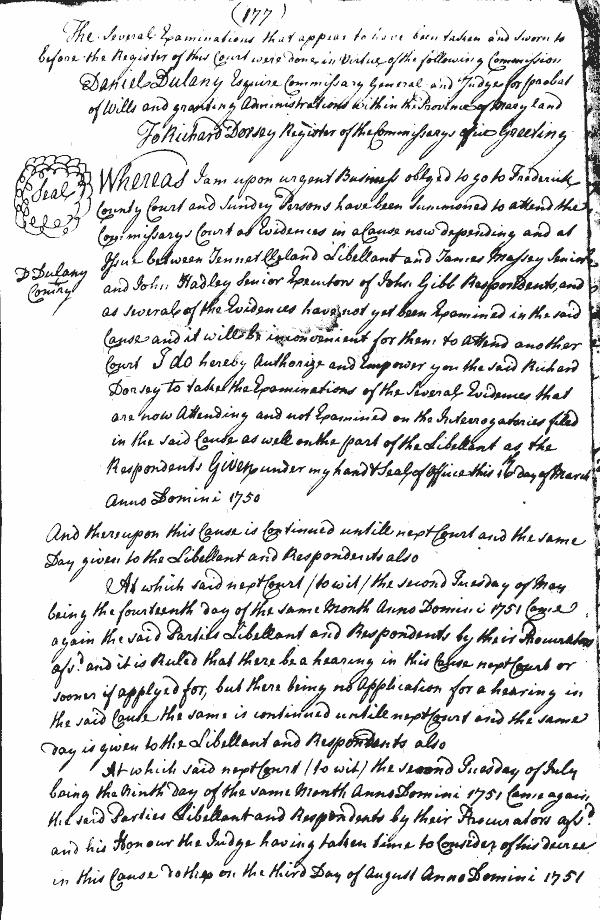 (177)
The Several Examinations that appear to have been taken and sworn to
before the Register of this Court were done in Virtue of the following Commission
Daniel Dulany Esquire Commissary General and Judge for probat
of Wills and granting Administrations within the Province of Maryland
To Richard Dorsey Register of the Commissarys Office Greeting
Seal
Whereas I am upon urgent Business obliged to go to Frederick
County Court and Sundry Persons have been Summoned to attend the
Commissarys Court as Evidences in a Cause now depending and at
Issue between Jennet Cleland Libellant and James Massey Senior
D Dulany
and John Hadley Senior Executors of John Gibb Respondents, and
as several of the Evidences have not yet been Examined in the said
Cause and it will be inconvenient for them to Attend another
Court I do hereby Authorize and Empower you the said Richard
Dorsey to take the Examinations of the Several Evidences that
are now Attending and not Examined on the Interrogatories filed
in the said Cause as well on the part of the Libellant as the
Respondents Given under my hand & Seal of Office this 16th day of March
Anno Domini 1750
And thereupon this Cause is Continued untill next Court and the same
Day given to the Libellant and Respondents also
At which said next Court (to wit) the second Tuesday of May
being the fourteenth day of the same Month Anno Domini 1751 Came
again the said Parties Libellant and Respondents by their Procurators
afsd and it is Ruled that there be a hearing in this Cause next Court or
sooner if applyed for, but there being no Application for a hearing in
the said Cause the same is continued untill next Court and the same
day is given to the Libellant and Respondents also
At which said next Court (to wit) the second Tuesday of July
being the Ninth day of the same Month Anno Domini 1751 Came again
the said Parties Libellant and Respondents by their Procurators afsd
and his Honour the Judge having taken time to Consider of his decree
in this Cause doth on the third Day of August Anno Domini 1751